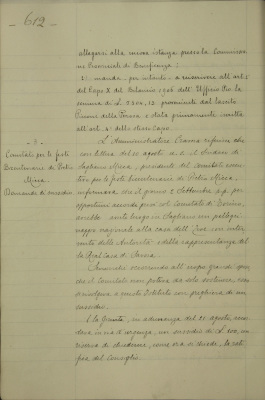 612
allegarsi alla nuova istanza presso la Commissione
Provinciale di Beneficenza;
2° manda, per intanto, a riscriversi all'art.
del Capo X del Bilancio 1906 dell'Ufficio Pio la
somma di L. 2200,12 proveniente dal lascito
della e stata primamente inscritta
all'art. 4 dello stesso Capo.
- 9 -
Comitato per le feste
Bicentenarie di Pietro
Micca.
Domanda di sussidio
L'Amministratore riferisce che
con lettera del 10 agosto u. s. il Sindaco di
Sagliano Micca, presidente del Comitato
per le feste bicentenarie di Pietro Micca,
informava che il giorno 2 Settembre p. p. per
opportuni accordi presi col Comitato di Torino,
avrebbe avuto luogo in Sagliano un pellegrinaggio
nazionale alla casa dell'Eroe con intervento
delle Autorità e della rappresentanza della
Real Casa di Savoia.
Dovendosi sostenere all'uopo gravi spese
che il Comitato non poteva da solo sostenere, esso
si rivolgeva a questo Istituto con preghiera di un
sussidio.
E la Giunta, in adunanza del 21 agosto,
in via d'urgenza, un sussidio di L. 100, in
riserva di chiederne, come ora si chiede, la ratifica
del Consiglio.